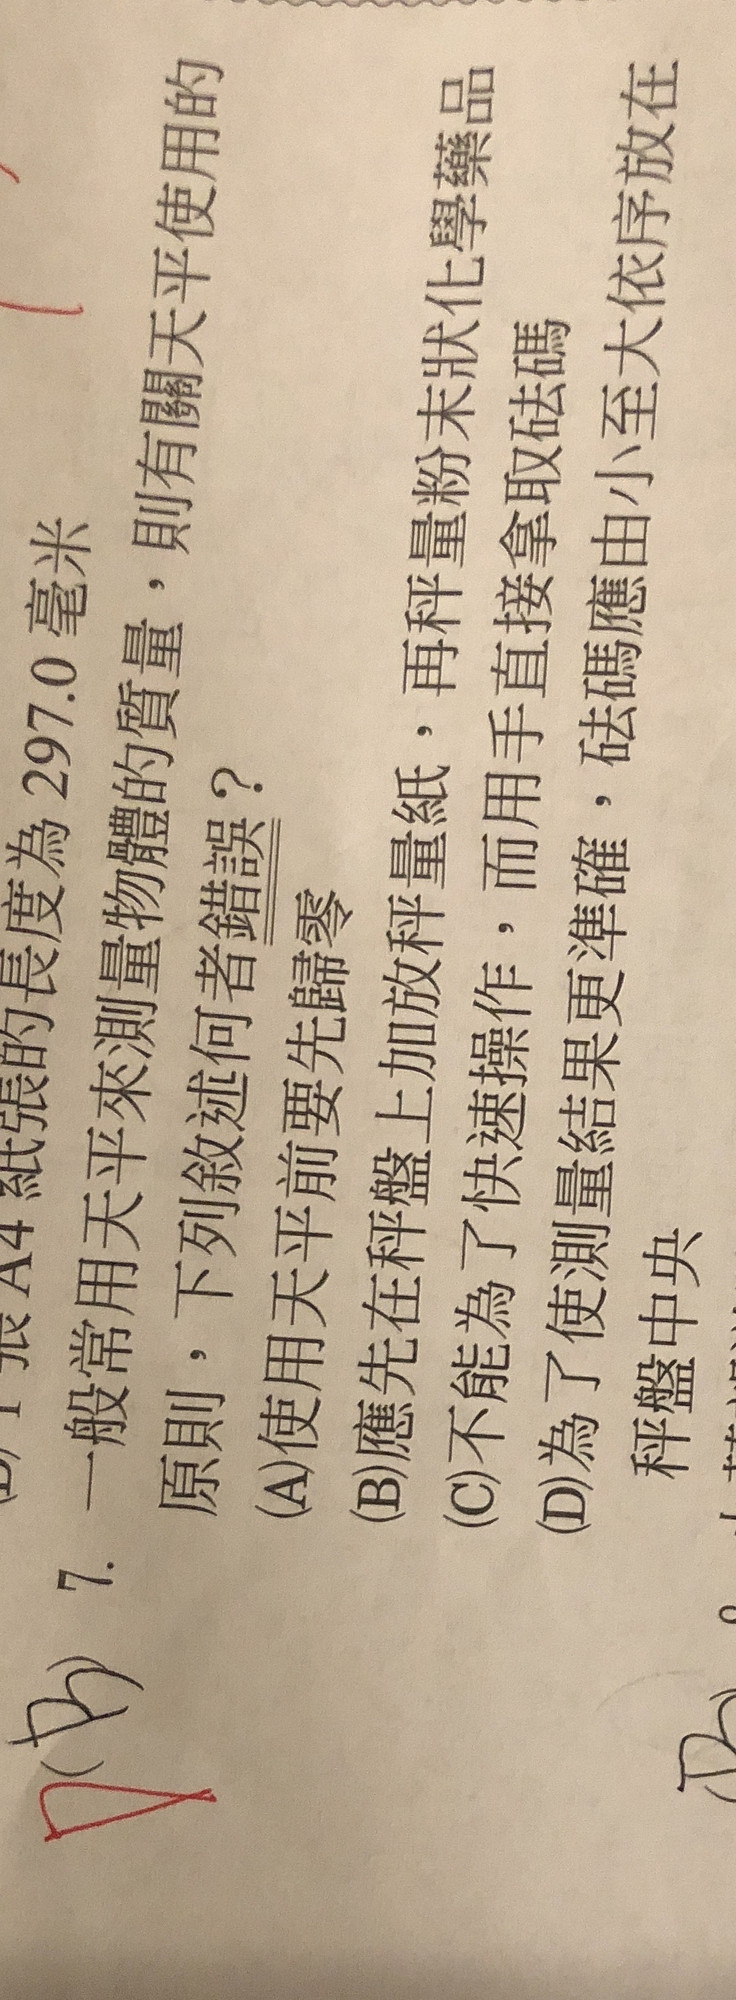 張 A4 紙張的長度為 297.0 毫米
(B) 7. 一般常用天平來測量物體的質量，則有關天平使用的
原則，下列敘述何者錯誤？
(A)使用天平前要先歸零
(B)應先在秤盤上加放秤量紙，再秤量粉末狀化學藥品
(C)不能為了快速操作，而用手直接拿取砝碼
(D)為了使測量結果更準確，砝碼應由小至大依序放在
秤盤中央